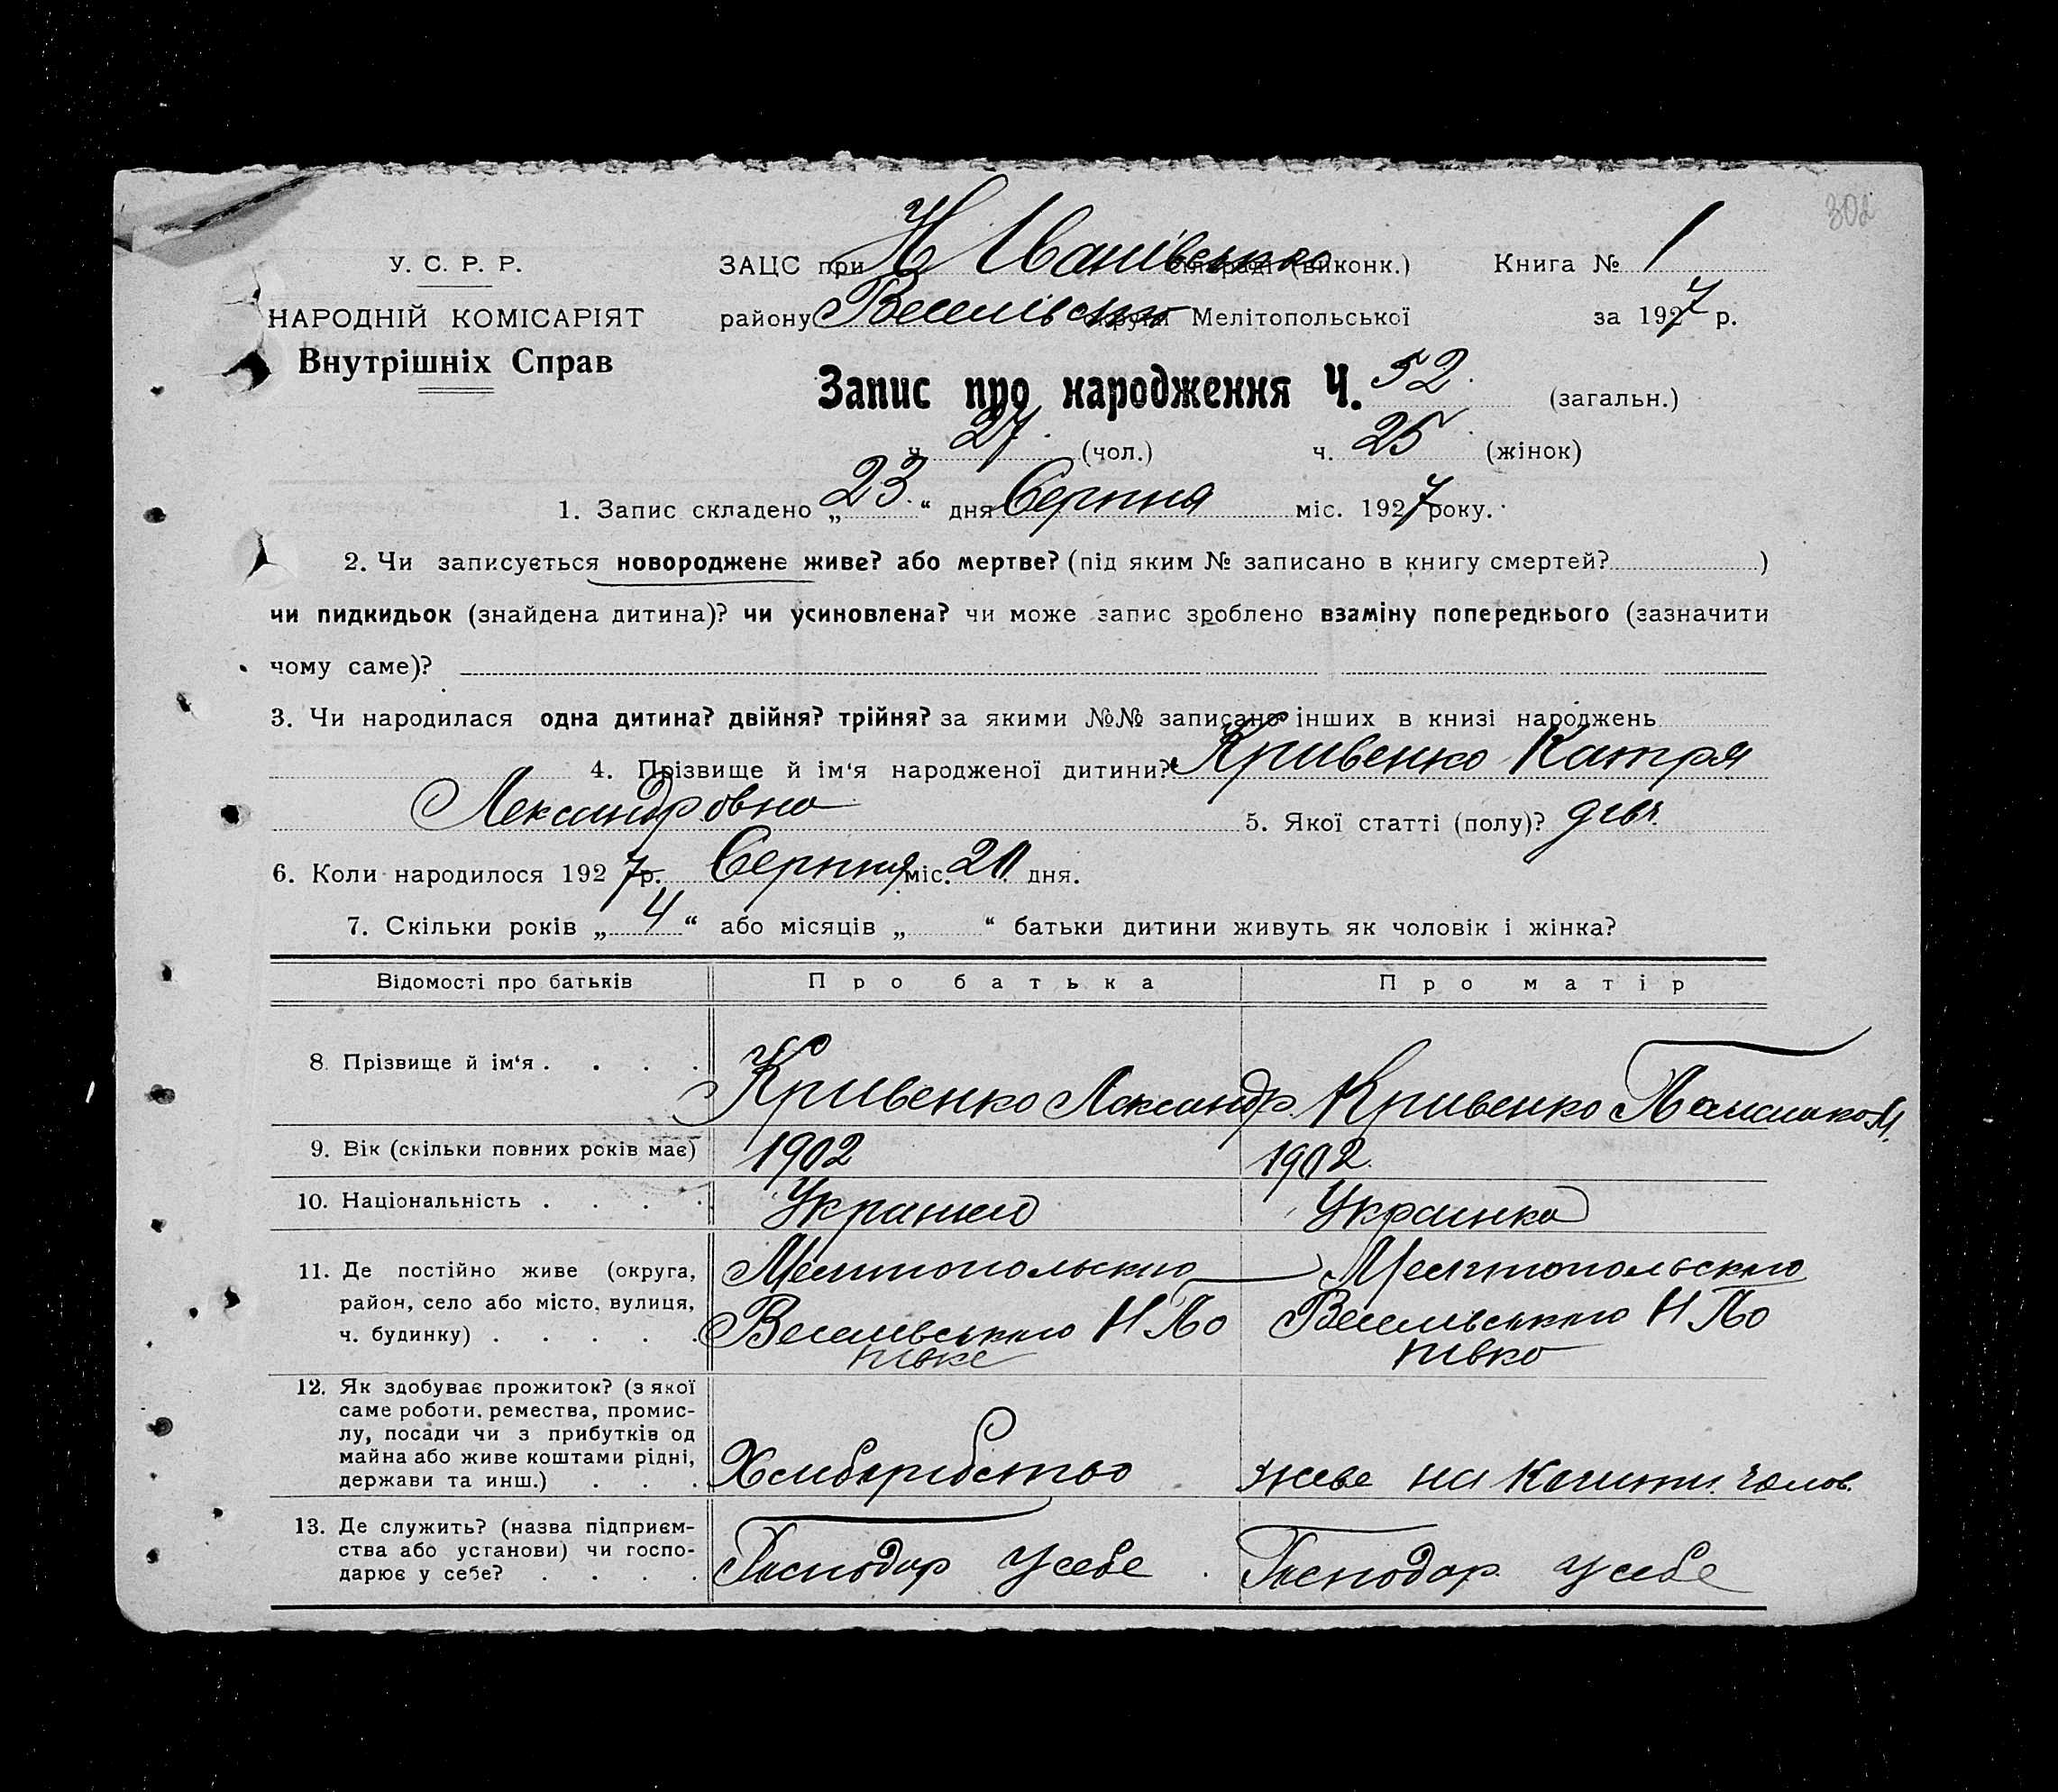 302
У. С. Р. Р.
НАРОДНІЙ КОМІСАРІЯТ
Внутрішніх Справ
ЗАЦС при Н Іванівсько сільраді (виконк.) Книга № 1
району Веселівсько округи Мелітопольської за 1927 р.
Запис про народження Ч. 52. (загальн.)
ч. 27. (чол.) ч. 25 (жінок)
1. Запис складено „23.“ дня Серпня міс. 1927 року.
2. Чи записується новороджене живе? або мертве? (під яким № записано в книгу смертей? )
чи пидкидьок (знайдена дитина)? чи усиновлена? чи може запис зроблено взаміну попереднього (зазначити
чому саме)?
3. Чи народилася одна дитина? двійня? трійня? за якими №№ записано інших в книзі народжень
4. Прізвище й ім‘я народженої дитини? Кривенко Катря
Лександровна 5. Якої статті (полу)? дівч.
6. Коли народилося 1927 р. Серпня міс. 20 дня.
7. Скільки років „4“ або місяців „ “ батьки дитини живуть як чоловік і жінка?
Відомості про батьків Про батька Про матір
8. Прізвище й ім‘я . . . . Кривенко Лександр. Кривенко М.
9. Вік (скільки повних років має) 1902 1902.
10. Національність . . . . Украинец Украинка
11. Де постійно живе (округа, Мелитопольскио Мелитопольскио
район, село або місто, вулиця, Веселивськио Н Веселивськио Н
ч. будинку) . . . . .
12. Як здобуває прожиток? (з якої
саме роботи, ремества, промис-
лу, посади чи з прибутків од
майна або живе коштами рідні,
держави та инш.) . . . Хлиборобство живе на Кошти чолов.
13. Де служить? (назва підприєм-
ства або установи) чи госпо-
дарює у себе? . . . . Господар у себе. Господар у себе